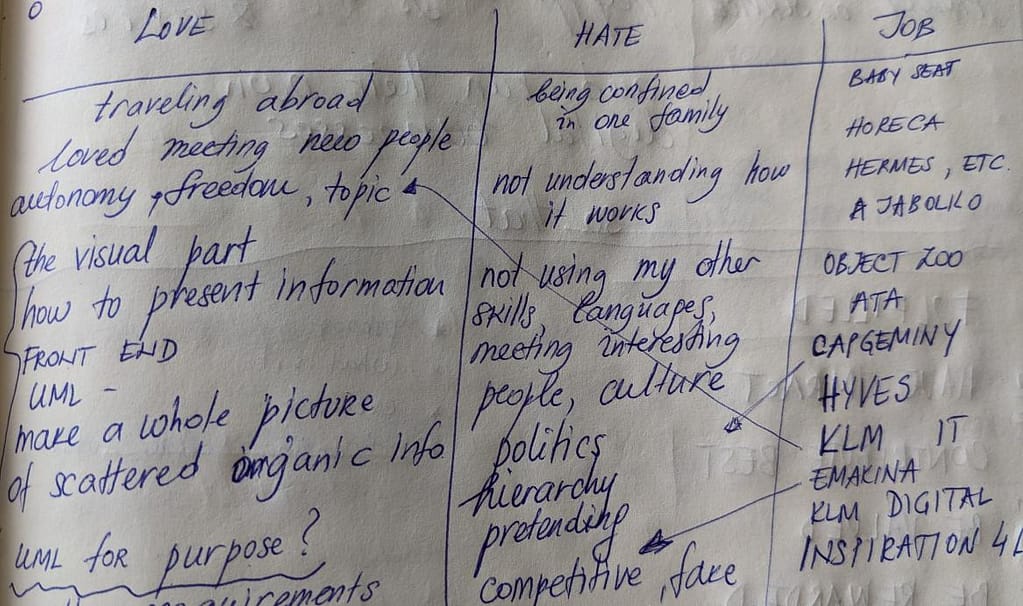 LOVE
traveling abroad
loved meeting new people
autonomy, freedom, topic
the visual part
how to present information
FRONT END
UML -
make a whole picture
of scattered organic info
UML for purpose?
HATE
being confined
in one family
not understanding how
it works
not using my other
skills, languages,
meeting interesting
people, culture
politics
hierarchy
pretending
competitive, fake
JOB
BABY SEAT
HORECA
HERMES, ETC.
A JABOLKO
OBJECT ZOO
ATA
CAPGEMINY
HYVES
KLM IT
EMAKINA
KLM DIGITAL
INSPIRATION 4